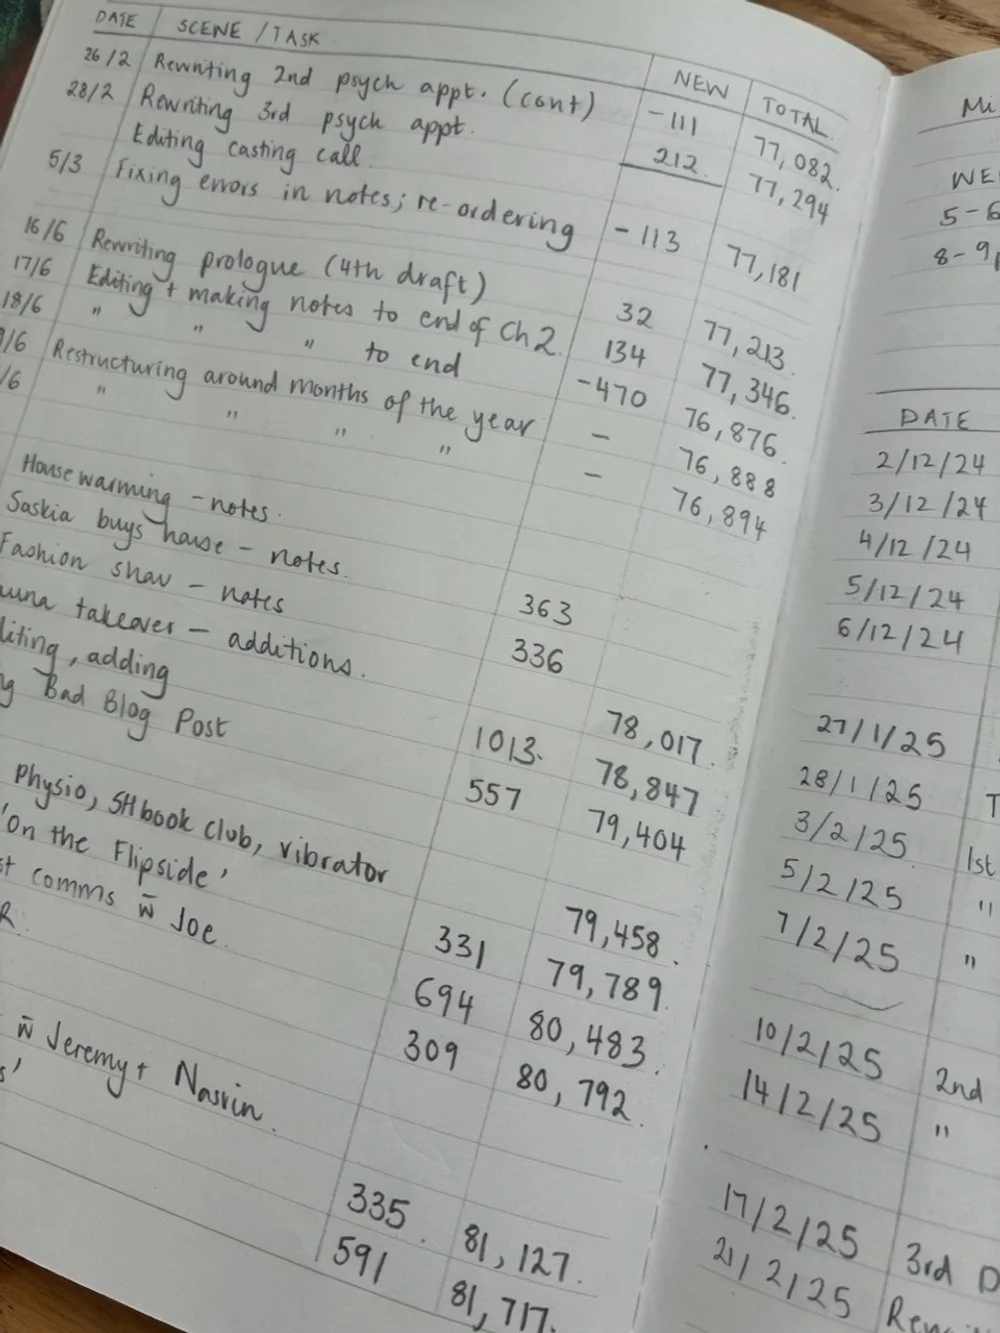 DATE SCENE / TASK NEW TOTAL
26/2 Rewriting 2nd psych appt. (cont) -111 77,082.
28/2 Rewriting 3rd psych appt. 212. 77,294
Editing casting call
5/3 Fixing errors in notes; re-ordering -113 77,181
16/6 Rewriting prologue (4th draft) 32 77,213.
17/6 Editing + making notes to end of Ch 2. 134 77,346.
18/6 " " " to end -470 76,876.
/6 Restructuring around months of the year – 76,888
/6 " " " " – 76,894
House warming – notes.
Saskia buys house – notes. 363
Fashion show – notes 336
takeover – additions.
adding 1013. 78,017.
Bad Blog Post 557 78,847
79,404
Physio, SH book club, vibrator
'On the Flipside' 79,458.
comms w̄ Joe. 331 79,789.
R. 694 80,483.
309 80,792.
w̄ Jeremy + Nasrin.
335. 81,127.
591 81,717.
Mi
WE
5-6
8-9
DATE
2/12/24
3/12/24
4/12/24
5/12/24
6/12/24
27/1/25
28/1/25 T
3/2/25. 1st
5/2/25 "
7/2/25 "
10/2/25 2nd
14/2/25 "
17/2/25 3rd D
21/2/25